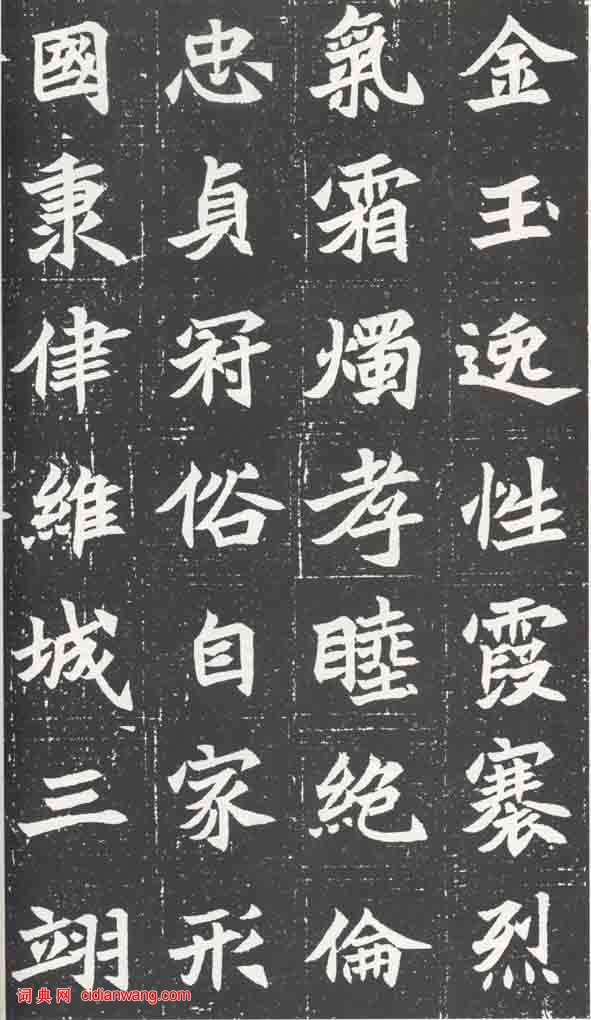 金玉逸性霞褰烈
氣霜燭孝睦絶倫
忠貞冠俗自家形
國秉律維城三翊
词典网 cidianwang.com